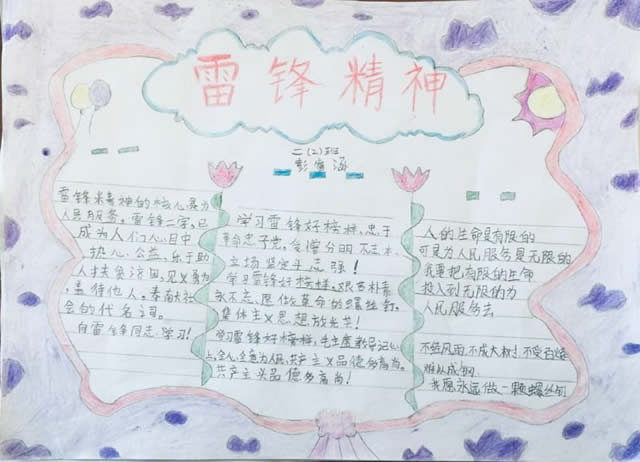 雷锋精神
二(2)班
雷锋精神的核心是为
人民服务。雷锋二字,已
成为人们心目中
热心公益,乐于助
人扶贫济困,见义勇为
善待他人,奉献社
会的代名词。
向雷锋同志学习!
学习雷锋好榜样,忠于
革命忠于党,爱憎分明不忘本
立场坚定斗志强!
学习雷锋好榜样,艰苦朴素
永不忘,愿做革命的螺丝钉,
集体主义思想放光芒!
学习雷锋好榜样,毛主席教导记心
上,全心全意为人民,共产主义品德多高尚。
共产主义品德多高尚!
人的生命是有限的
可是为人民服务是无限的
我要把有限的生命
投入到无限的为
人民服务去
不经风雨,不成大树,不受百炼
难以成钢。
我愿永远做一颗螺丝钉